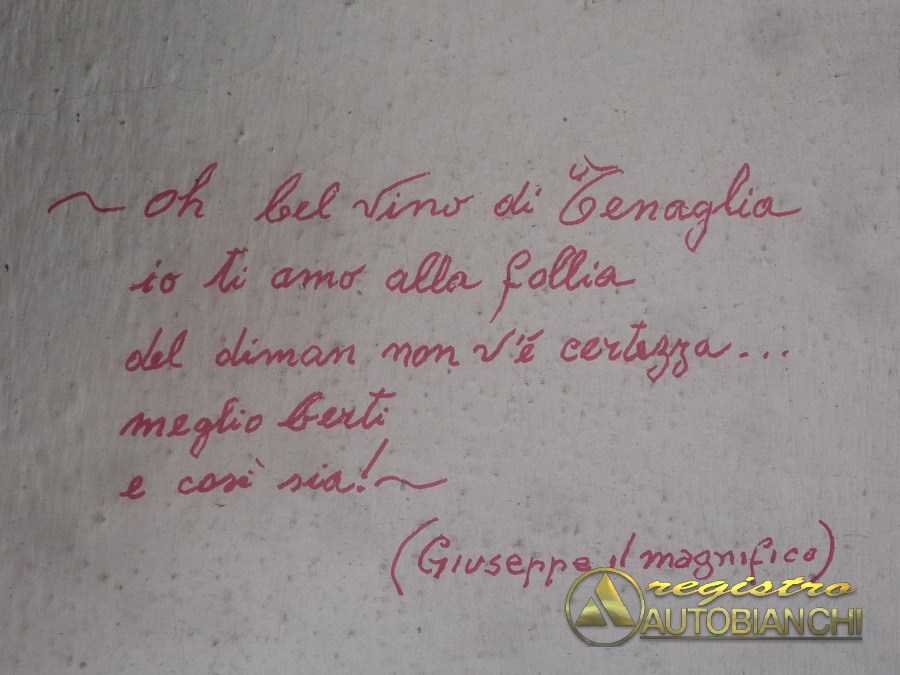 ~ Oh bel vino di Tenaglia
io ti amo alla follia
del diman non v'é certezza...
meglio berti
e così sia! ~
(Giuseppe il magnifico)
registro
AUTOBIANCHI